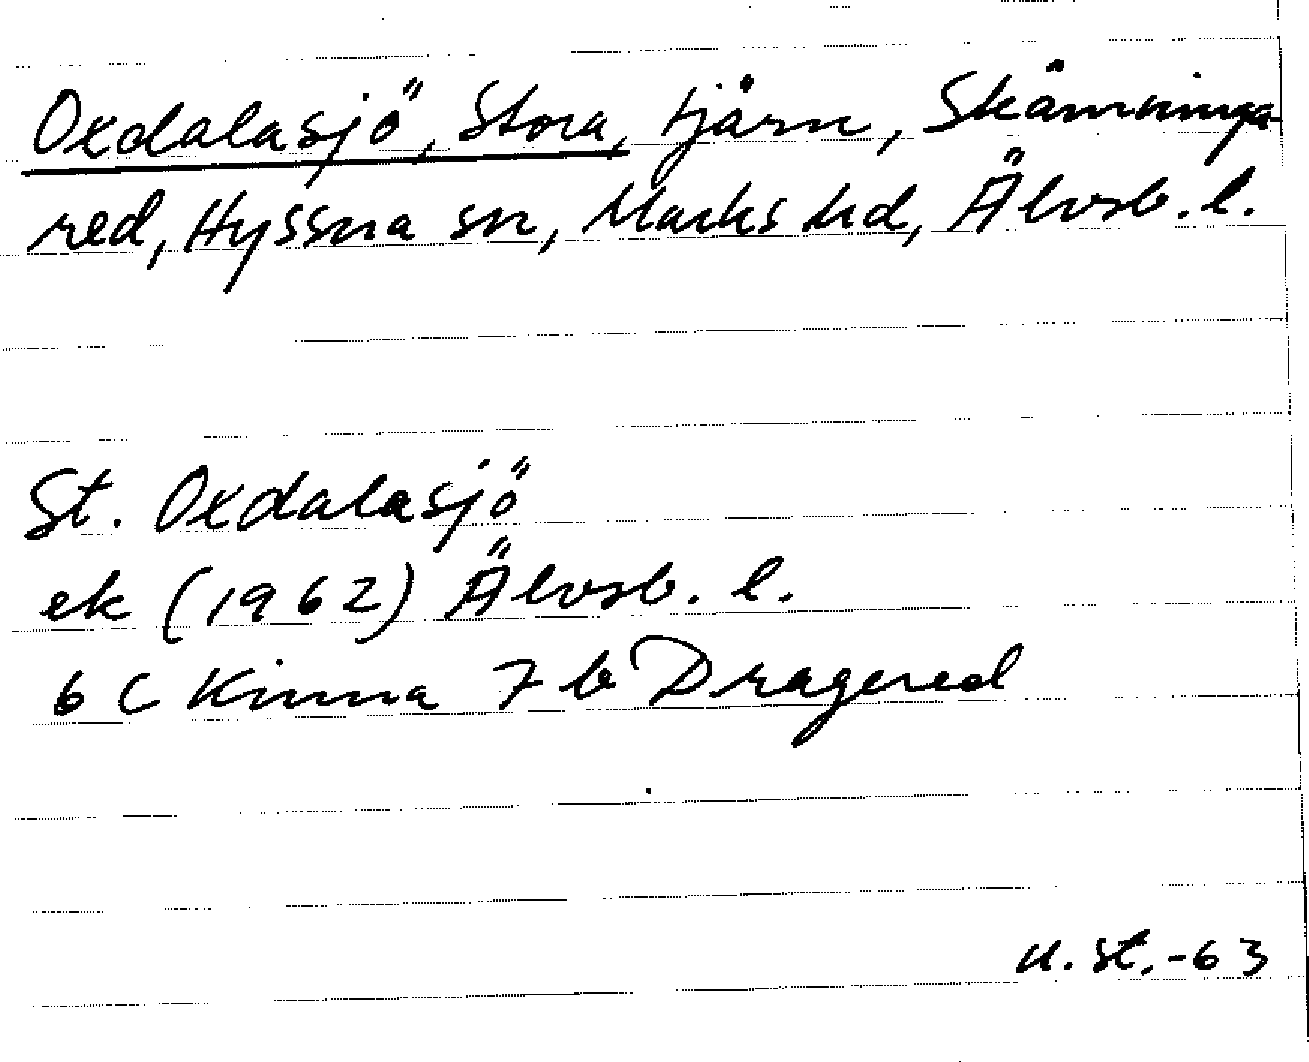 Oxdalasjö, Stora, tjärn, Skämninga-
red, Hyssna sn, Marks hd, Älvsb. l.
St. Oxdalasjö
ek (1962) Älvsb. l.
6 C Kinna 7 b Dragered
U. St. -63